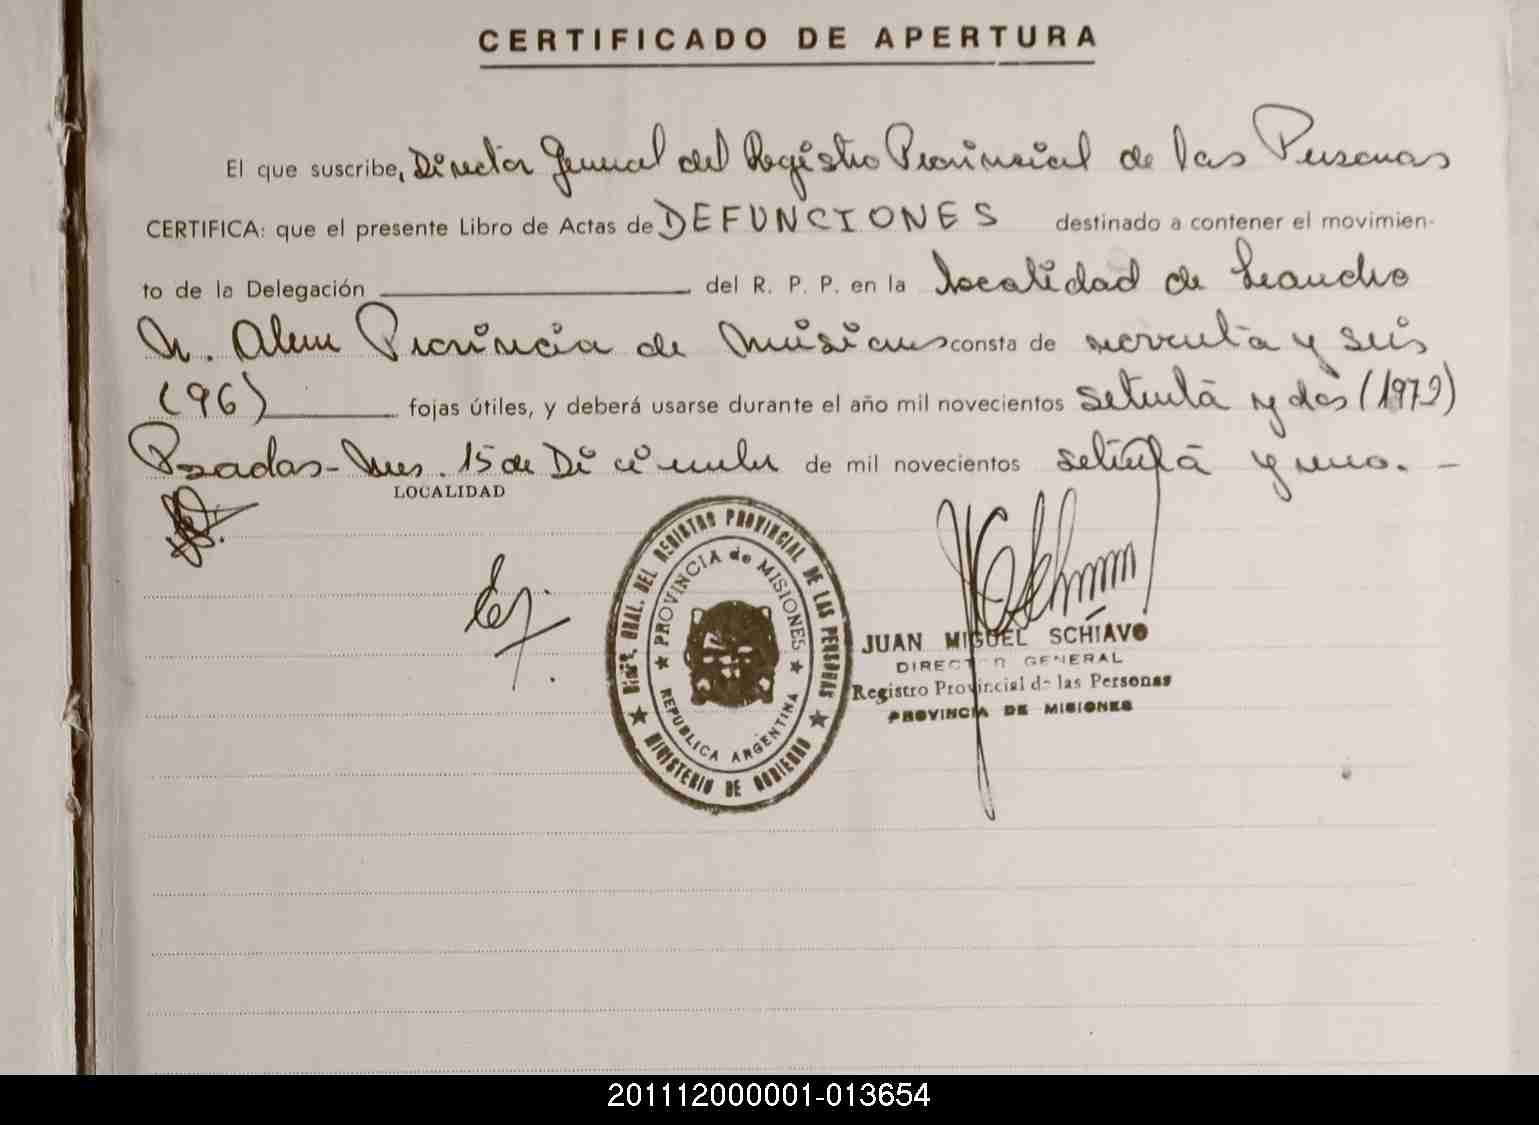 CERTIFICADO DE APERTURA
El que suscribe, Director General del Registro Provincial de las Personas
CERTIFICA: que el presente Libro de Actas de DEFUNCIONES destinado a contener el movimien-
to de la Delegación del R. P. P. en la localidad de Leandro
N. Alem Provincia de Misiones consta de noventa y seis
(96) fojas útiles, y deberá usarse durante el año mil novecientos setenta y dos (1972)
Posadas - Mnes. 15 de Diciembre de mil novecientos setenta y uno. -
LOCALIDAD
DIREC. GRAL. DEL REGISTRO PROVINCIAL DE LAS PERSONAS
PROVINCIA de MISIONES
REPUBLICA ARGENTINA
MINISTERIO DE GOBIERNO
JUAN MIGUEL SCHIAVO
DIRECTOR GENERAL
Registro Provincial de las Personas
PROVINCIA DE MISIONES
201112000001-013654